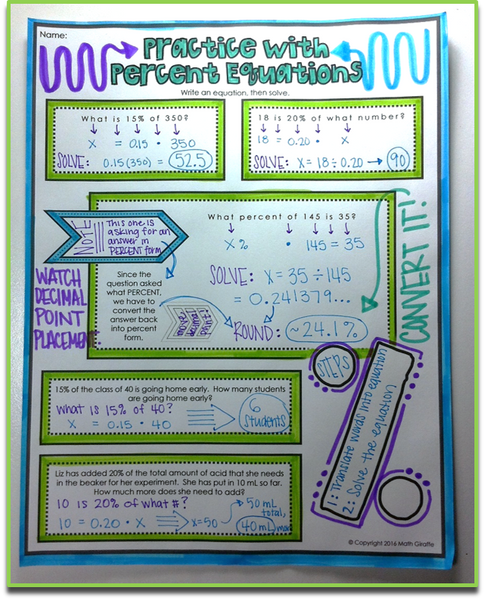 Name:
Practice with
Percent Equations
Write an equation, then solve.
What is 15% of 350?
x = 0.15 · 350
SOLVE: 0.15(350) = 52.5
18 is 20% of what number?
18 = 0.20 · x
SOLVE: x = 18 ÷ 0.20 → 90
NOTE
This one is
asking for an
answer in
PERCENT form
What percent of 145 is 35?
x % · 145 = 35
SOLVE: x = 35 ÷ 145
= 0.241379...
ROUND: ~24.1%
CONVERT IT!
WATCH
DECIMAL
POINT
PLACEMENT:
Since the
question asked
what PERCENT,
we have to
convert the
answer back
into percent
form.
move
decimal
point!
15% of the class of 40 is going home early. How many students
are going home early?
What is 15% of 40?
x = 0.15 · 40
6
students
STEPS
1: Translate words into equation
2: Solve the equation
Liz has added 20% of the total amount of acid that she needs
in the beaker for her experiment. She has put in 10 mL so far.
How much more does she need to add?
10 is 20% of what #?
10 = 0.20 · x
x=50
50 mL
total,
40 mL more
© Copyright 2016 Math Giraffe